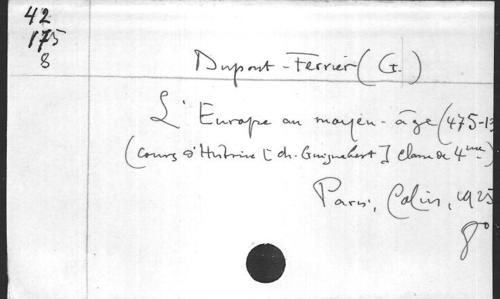 42
175
8
Dupont-Ferrier (G.)
L'Europe au moyen-âge (475-13
(Cours d'Histoire [Ch. Guignebert] Classe de 4me)
Paris, Colin, 1925
8°